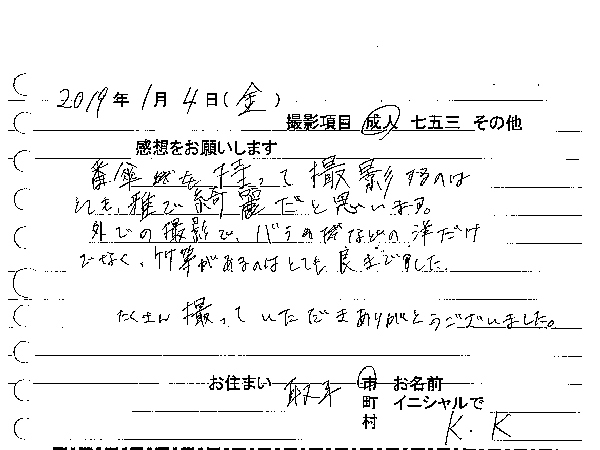 2019年1月4日(金)
撮影項目 成人 七五三 その他
感想をお願いします
番傘を持って撮影するのは
とても、雅で綺麗だと思います。
外での撮影で、バラの塔などの洋だけ
でなく、竹等があるのはとても良きでした。
たくさん撮っていただきありがとうございました。
お住まい 取手 市 お名前
町 イニシャルで
村 K.K